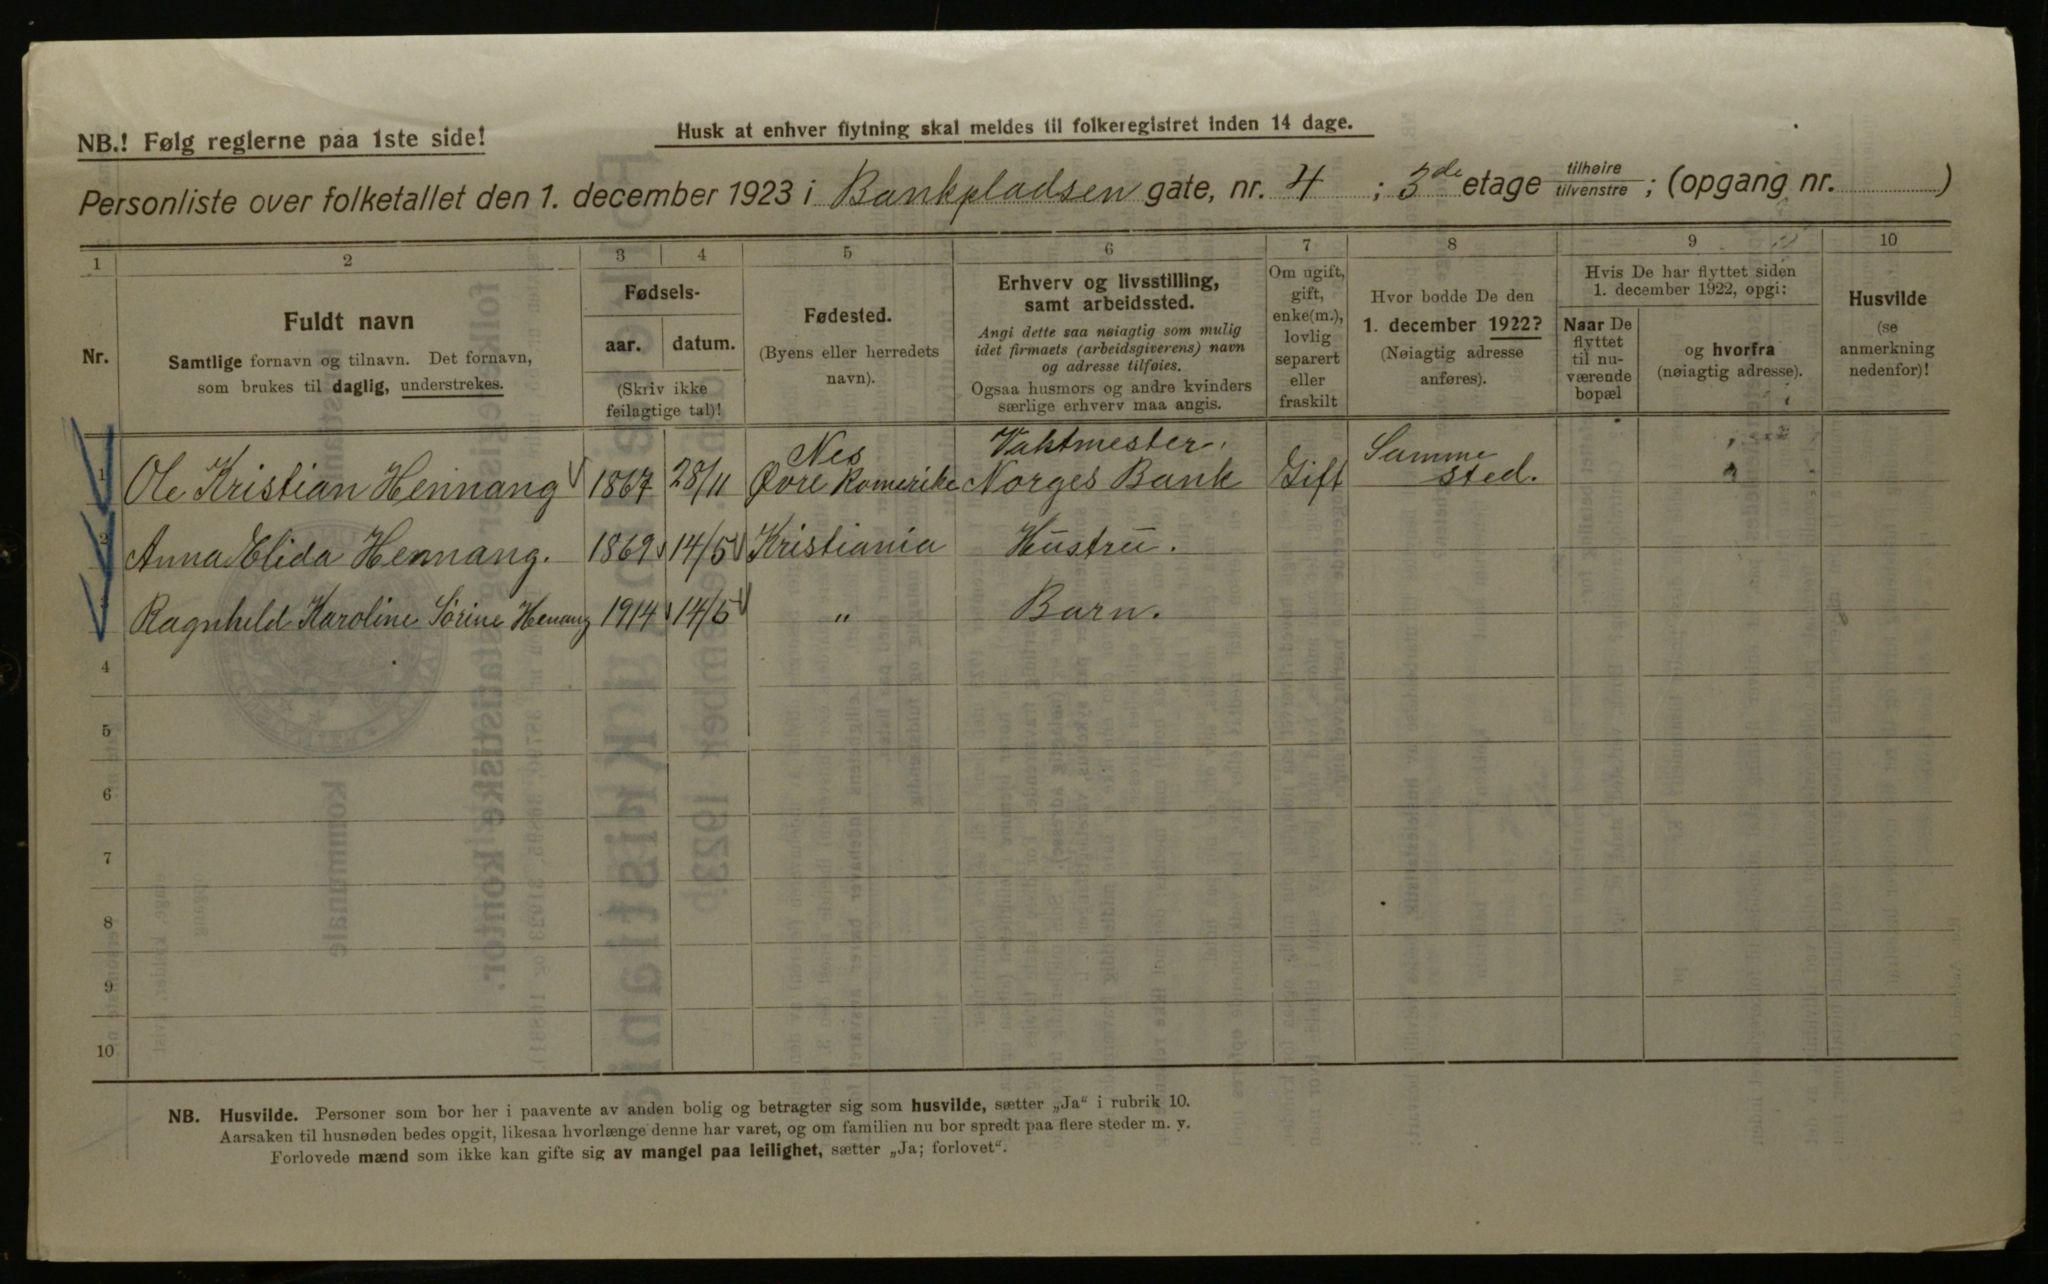 NB.! Følg reglerne paa 1ste side!
Husk at enhver flytning skal meldes til folkeregistret inden 14 dage.
Personliste over folketallet den 1. december 1923 i Bankpladsen gate, nr. 4 ; 3de etage tilhøire/tilvenstre ; (opgang nr. )
1 2 3 4 5 6 7 8 9 10
Nr.
Fuldt navn
Samtlige fornavn og tilnavn. Det fornavn,
som brukes til daglig, understrekes.
Fødsels-
aar. datum.
(Skriv ikke
feilagtige tal)!
Fødested.
(Byens eller herredets
navn).
Erhverv og livsstilling,
samt arbeidssted.
Angi dette saa nøiagtig som mulig
idet firmaets (arbeidsgiverens) navn
og adresse tilføies.
Ogsaa husmors og andre kvinders
særlige erhverv maa angis.
Om ugift,
gift,
enke(m.),
lovlig
separert
eller
fraskilt
Hvor bodde De den
1. december 1922?
(Nøiagtig adresse
anføres).
Hvis De har flyttet siden
1. december 1922, opgi:
Naar De
flyttet
til nu-
værende
bopæl
og hvorfra
(nøiagtig adresse).
Husvilde
(se
anmerkning
nedenfor)!
Nes Vaktmester. Samme
1 Ole Kristian Hennang 1867 28/11 Øvre Romerike Norges Bank Gift sted.
2 Anna Elida Hennang. 1869 14/5 Kristiania Hustru.
3 Ragnhild Karoline Sørine Henang 1914 14/5 „ Barn.
4
5
6
7
8
9
10
NB. Husvilde. Personer som bor her i paavente av anden bolig og betragter sig som husvilde, sætter „Ja“ i rubrik 10.
Aarsaken til husnøden bedes opgit, likesaa hvorlænge denne har varet, og om familien nu bor spredt paa flere steder m. v.
Forlovede mænd som ikke kan gifte sig av mangel paa leilighet, sætter „Ja; forlovet“.